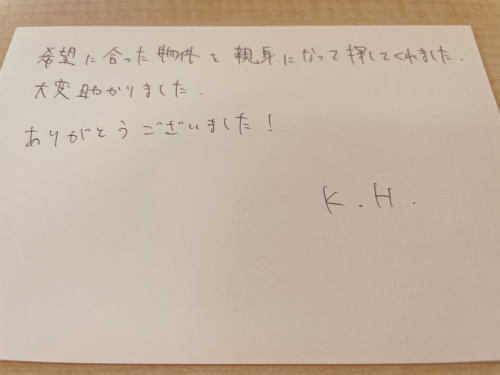 希望に合った物件を親身になって探してくれました.
大変助かりました.
ありがとうございました!
K.H.